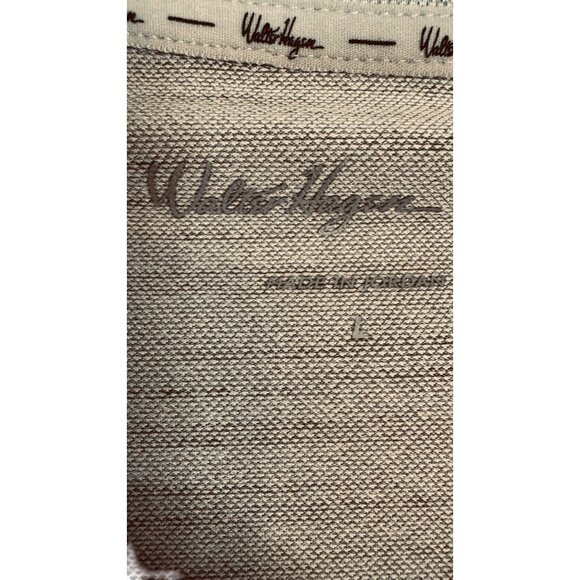 Walter Hagen — Walter
Walter Hagen
MADE IN JORDAN
L